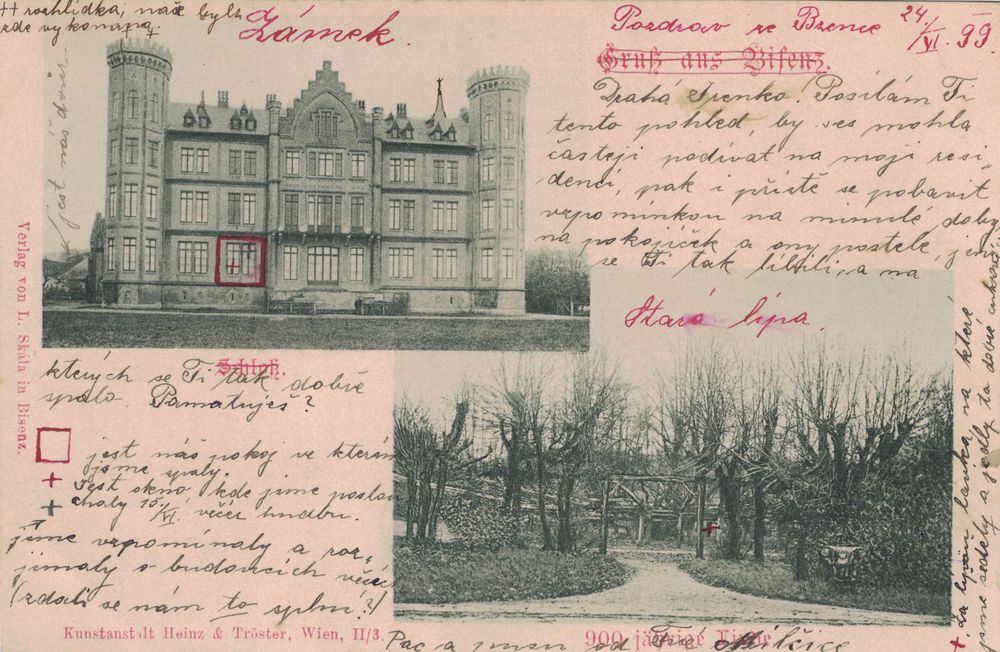 ++ rozhlídka, naše byla
zde vykonaná
Zámek.
Pozdrav ze Bzence 24./VI. 99.
Gruß aus Bisenz.
Drahá Irenko! Posílám Ti
tento pohled, by ses mohla
částeji podívat na moji resi-
denci, pak i příště se pobavit
vzpomínkou na minulé doby,
na pokojíček a ony postele, jenž
se Ti tak líbili, a na
kterých se Ti tak dobře
spalo. Pamatuješ?
jest náš dvůr
Verlag von L. Skála in Bisenz.
Schloß.
Stará lípa.
jest náš pokoj ve kterém
jsme spaly.
+ Jest okno kde jsme poslou-
+ chaly 15./VI. večer hudbu.
jsme vzpomínaly a roz-
jímaly o budoucích věcech
(zdali se nám to splní?)
Kunstanstalt Heinz & Tröster, Wien, II/3.
900 jährige Linde.
Pac a pusu od Tvé
+ Za lípou lavička na které
jsme seděly a jedly ta dobré